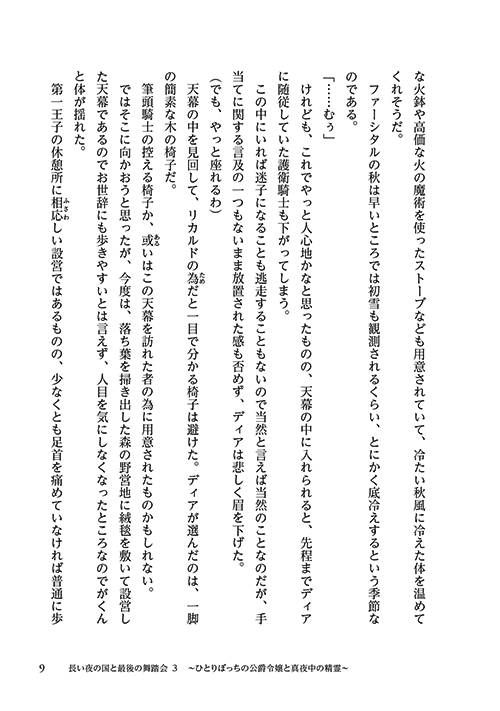 な火鉢や高価な火の魔術を使ったストーブなども用意されていて、冷たい秋風に冷えた体を温めて
くれそうだ。
ファーシタルの秋は早いところでは初雪も観測されるくらい、とにかく底冷えするという季節な
のである。
「……むぅ」
けれども、これでやっと人心地かなと思ったものの、天幕の中に入れられると、先程までディア
に随従していた護衛騎士も下がってしまう。
この中にいれば迷子になることも逃走することもないので当然と言えば当然のことなのだが、手
当てに関する言及の一つもないまま放置された感も否めず、ディアは悲しく眉を下げた。
(でも、やっと座れるわ)
天幕の中を見回して、リカルドの為ためだと一目で分かる椅子は避けた。ディアが選んだのは、一脚
の簡素な木の椅子だ。
筆頭騎士の控える椅子か、或あるいはこの天幕を訪れた者の為に用意されたものかもしれない。
ではそこに向かおうと思ったが、今度は、落ち葉を掃き出した森の野営地に絨毯を敷いて設営し
た天幕であるのでお世辞にも歩きやすいとは言えず、人目を気にしなくなったところなのでがくん
と体が揺れた。
第一王子の休憩所に相応ふさわしい設営ではあるものの、少なくとも足首を痛めていなければ普通に歩
9 長い夜の国と最後の舞踏会 3 ～ひとりぼっちの公爵令嬢と真夜中の精霊～